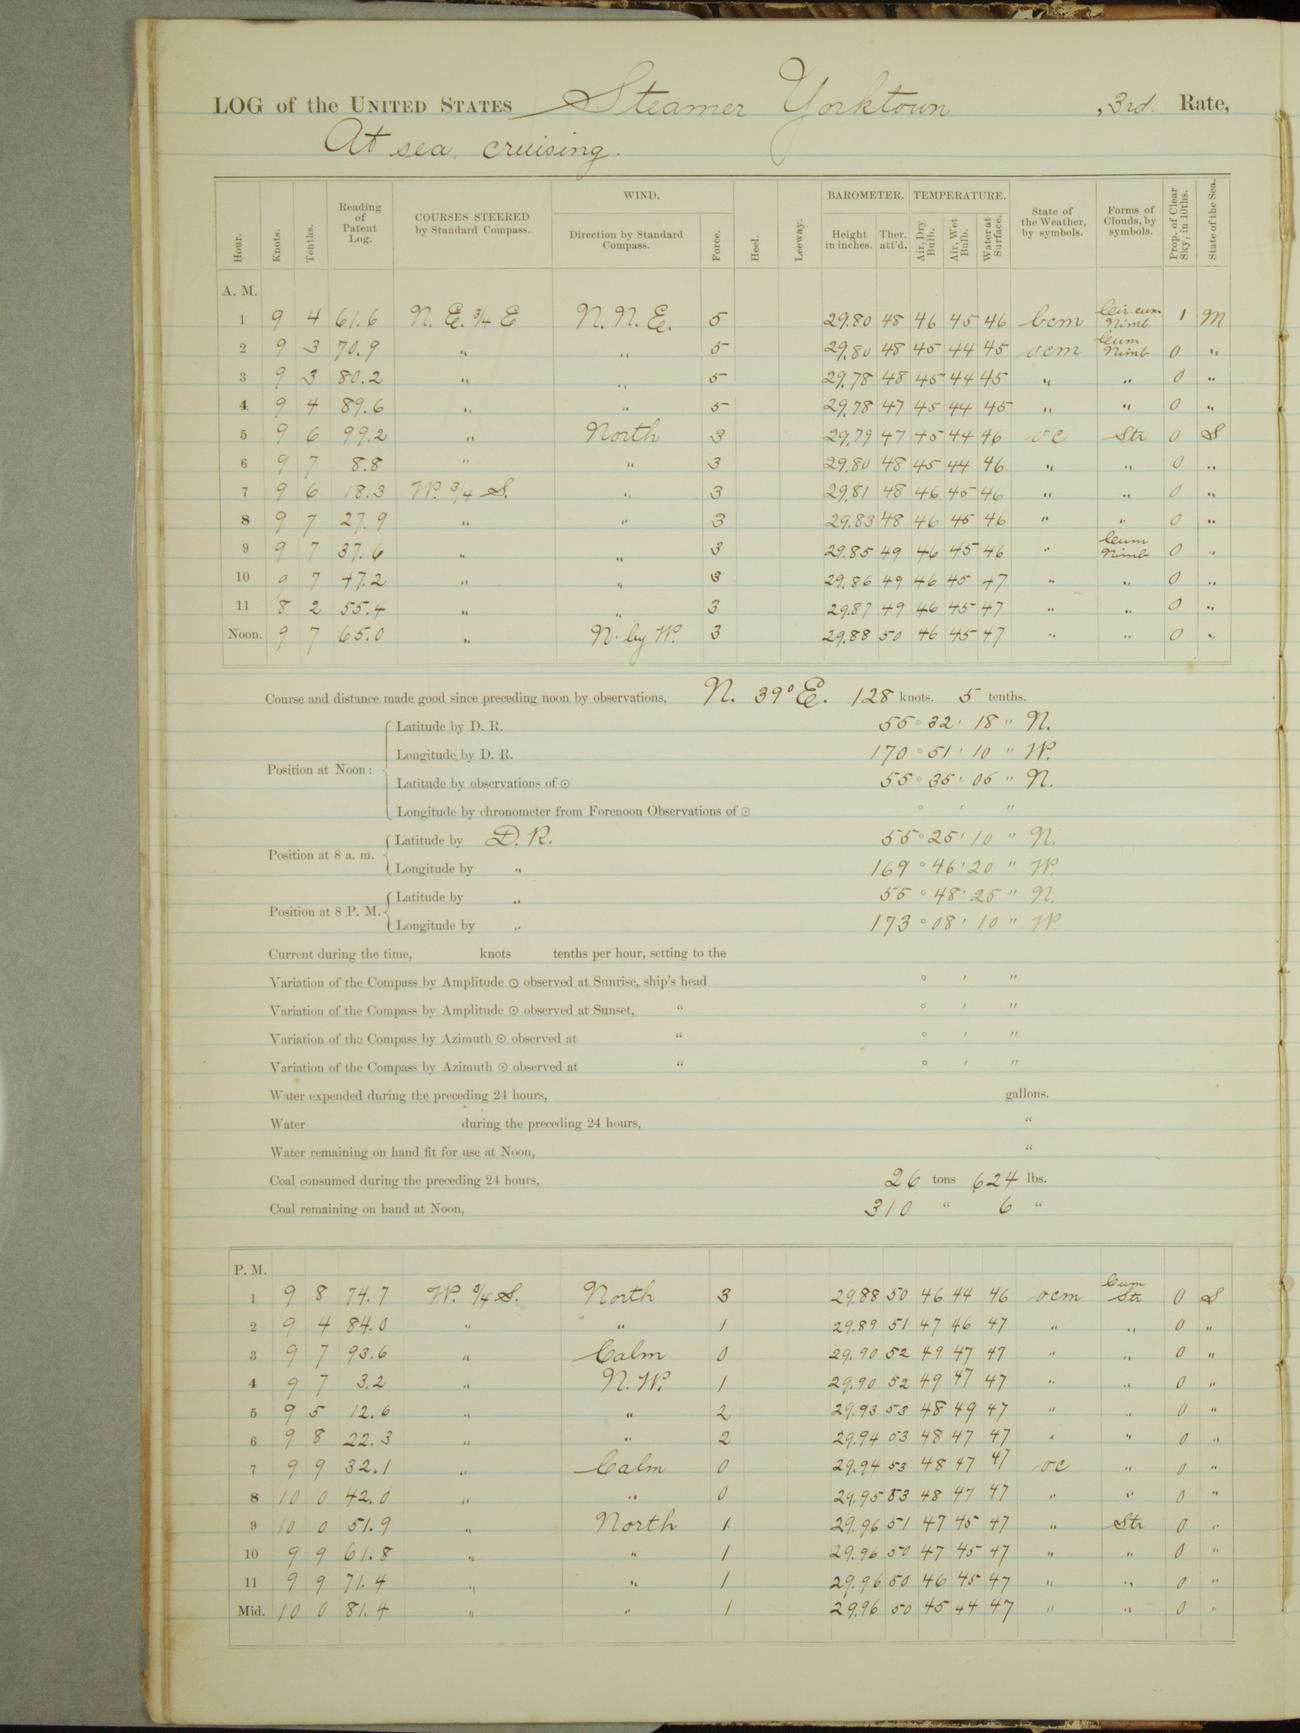 LOG of the UNITED STATES Steamer Yorktown, 3rd. Rate,
At sea, cruising.
Hour. Knots. Tenths. Reading of Patent Log. COURSES STEERED by Standard Compass. WIND. Direction by Standard Compass. Force. Heel. Leeway. BAROMETER. Height in inches. Ther. att'd. TEMPERATURE. Air, Dry Bulb. Air, Wet Bulb. Water at Surface. State of the Weather, by symbols. Forms of Clouds, by symbols. Prop. of Clear Sky, in 10ths. State of the Sea.
A. M.
1 9 4 61.6 N. E. 3/4 E N. N. E. 5 29.80 48 46 45 46 bcm Cir.cum. Nimb 1 M
2 9 3 70.9 " " 5 29.80 48 45 44 45 ocm Cum Nimb 0 "
3 9 3 80.2 " " 5 29.78 48 45 44 45 " " 0 "
4 9 4 89.6 " " 5 29.78 47 45 44 45 " " 0 "
5 9 6 99.2 " North 3 29.79 47 45 44 46 oc Str 0 S
6 9 7 8.8 " " 3 29.80 48 45 44 46 " " 0 "
7 9 6 18.3 W. 3/4 S. " 3 29.81 48 46 45 46 " " 0 "
8 9 7 27.9 " " 3 29.83 48 46 45 46 " " 0 "
9 9 7 37.6 " " 3 29.85 49 46 45 46 " Cum Nimb 0 "
10 9 7 47.2 " " 3 29.86 49 46 45 47 " " 0 "
11 8 2 55.4 " " 3 29.87 49 46 45 47 " " 0 "
Noon. 9 7 65.0 " N. by W. 3 29.88 50 46 45 47 " " 0 "
Course and distance made good since preceding noon by observations, N. 39° E. 128 knots. 5 tenths.
Position at Noon: Latitude by D. R. 55° 32' 18" N.
Longitude by D. R. 170° 51' 10" W.
Latitude by observations of ☉ 55° 35' 05" N.
Longitude by chronometer from Forenoon Observations of ☉ ° ' "
Position at 8 a. m. Latitude by D. R. 55° 25' 10" N.
Longitude by " 169° 46' 20" W.
Position at 8 P. M. Latitude by " 55° 48' 25" N.
Longitude by " 173° 08' 10" W.
Current during the time, knots tenths per hour, setting to the
Variation of the Compass by Amplitude ☉ observed at Sunrise, ship's head ° ' "
Variation of the Compass by Amplitude ☉ observed at Sunset, " ° ' "
Variation of the Compass by Azimuth ☉ observed at " ° ' "
Variation of the Compass by Azimuth ☉ observed at " ° ' "
Water expended during the preceding 24 hours, gallons.
Water during the preceding 24 hours, "
Water remaining on hand fit for use at Noon, "
Coal consumed during the preceding 24 hours, 26 tons 624 lbs.
Coal remaining on hand at Noon, 310 " 6 "
P. M.
1 9 8 74.7 W. 3/4 S. North 3 29.88 50 46 44 46 ocm Cum Str 0 S
2 9 4 84.0 " " 1 29.89 51 47 46 47 " " 0 "
3 9 7 93.6 " Calm 0 29.90 52 49 47 47 " " 0 "
4 9 7 3.2 " N. W. 1 29.90 52 49 47 47 " " 0 "
5 9 5 12.6 " " 2 29.93 53 48 49 47 " " 0 "
6 9 8 22.3 " " 2 29.94 53 48 47 47 " " 0 "
7 9 9 32.1 " Calm 0 29.94 53 48 47 47 oc " 0 "
8 10 0 42.0 " " 0 29.95 53 48 47 47 " " 0 "
9 10 0 51.9 " North 1 29.96 51 47 45 47 " Str 0 "
10 9 9 61.8 " " 1 29.96 50 47 45 47 " " 0 "
11 9 9 71.4 " " 1 29.96 50 46 45 47 " " 0 "
Mid. 10 0 81.4 " " 1 29.96 50 45 44 47 " " 0 "